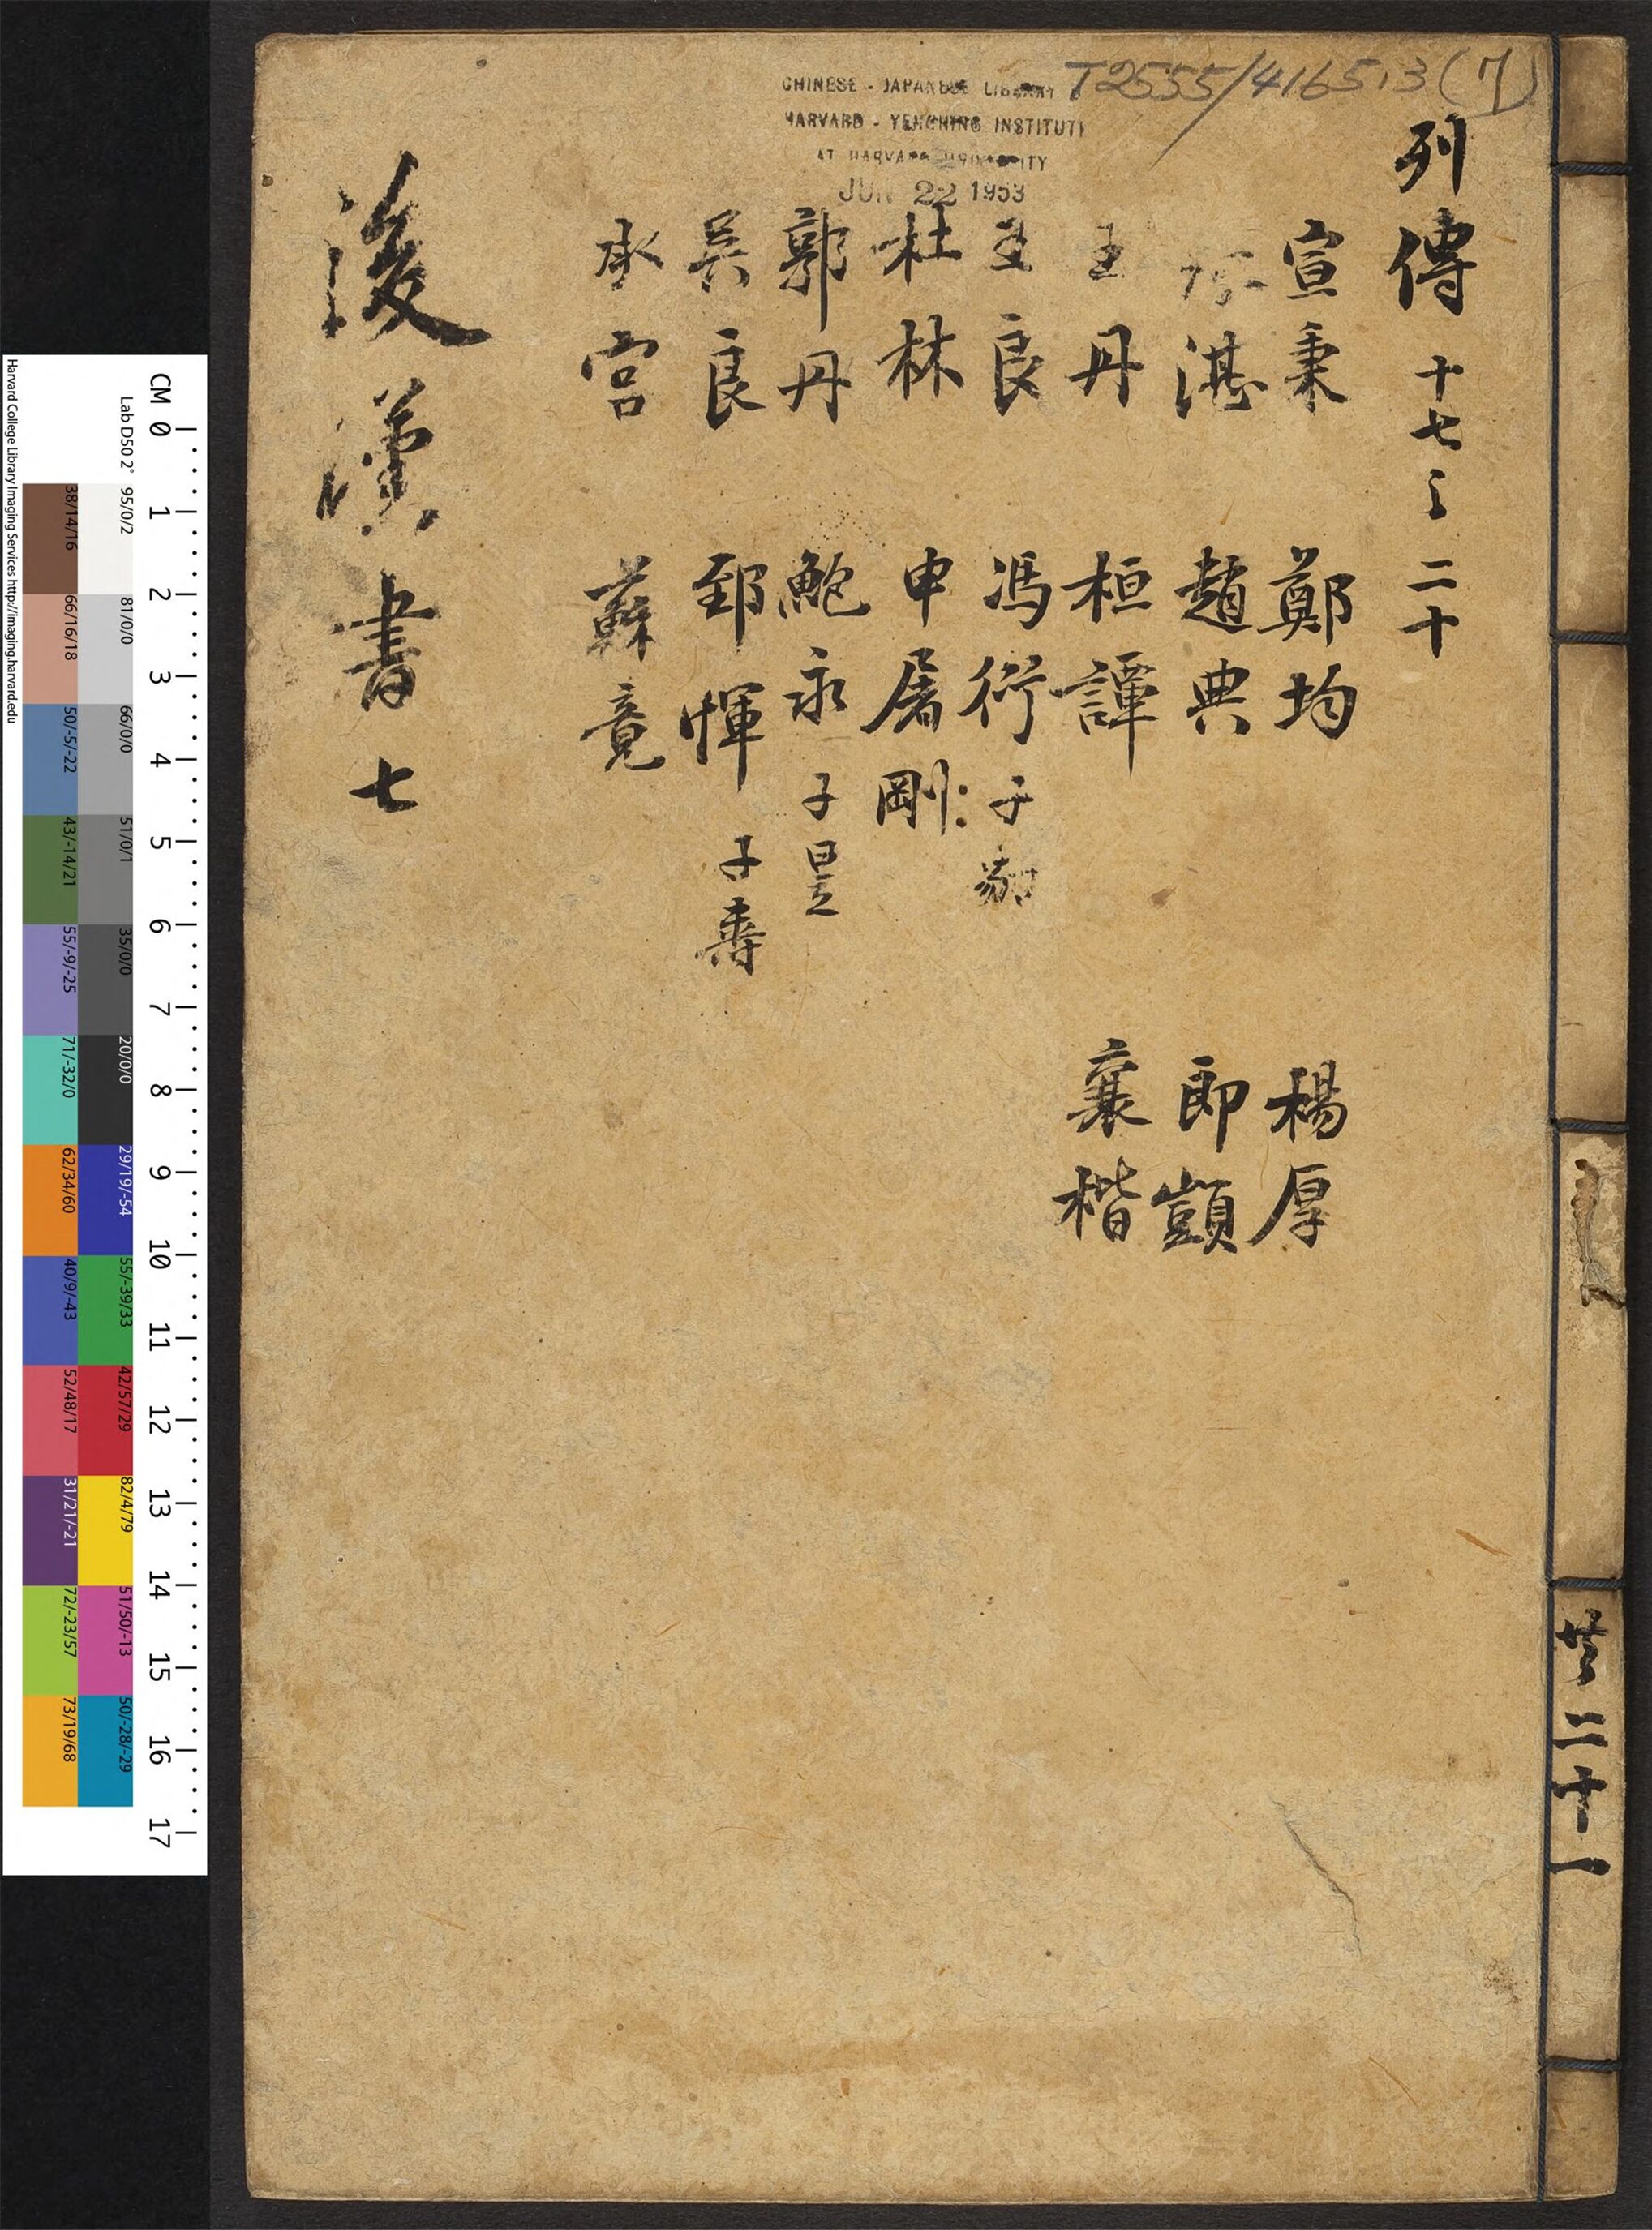 T2555/4165.13(7)
CHINESE - JAPANESE LIBRARY
HARVARD - YENCHING INSTITUTE
AT HARVARD UNIVERSITY
JUN 22 1953
列傳 十七之二十
宣秉
湛
王丹
王良
杜林
郭丹
吳良
承宮
鄭均
趙典
桓譚
馮衍 子豹
申屠剛
鮑永 子昱
郅惲 子壽
蘇竟
楊厚
郎顗
襄楷
後漢書 七
共三十一
CM 0 1 2 3 4 5 6 7 8 9 10 11 12 13 14 15 16 17
Lab D50 2°
95/0/2
81/0/0
66/0/0
51/0/1
35/0/0
20/0/0
29/19/-54
55/-39/33
42/57/29
82/4/79
51/50/-13
50/-28/-29
38/14/16
66/16/18
50/-5/-22
43/-14/21
55/-9/-25
71/-32/0
62/34/60
40/9/-43
52/48/17
31/21/-21
72/-23/57
73/19/68
Harvard College Library Imaging Services http://imaging.harvard.edu